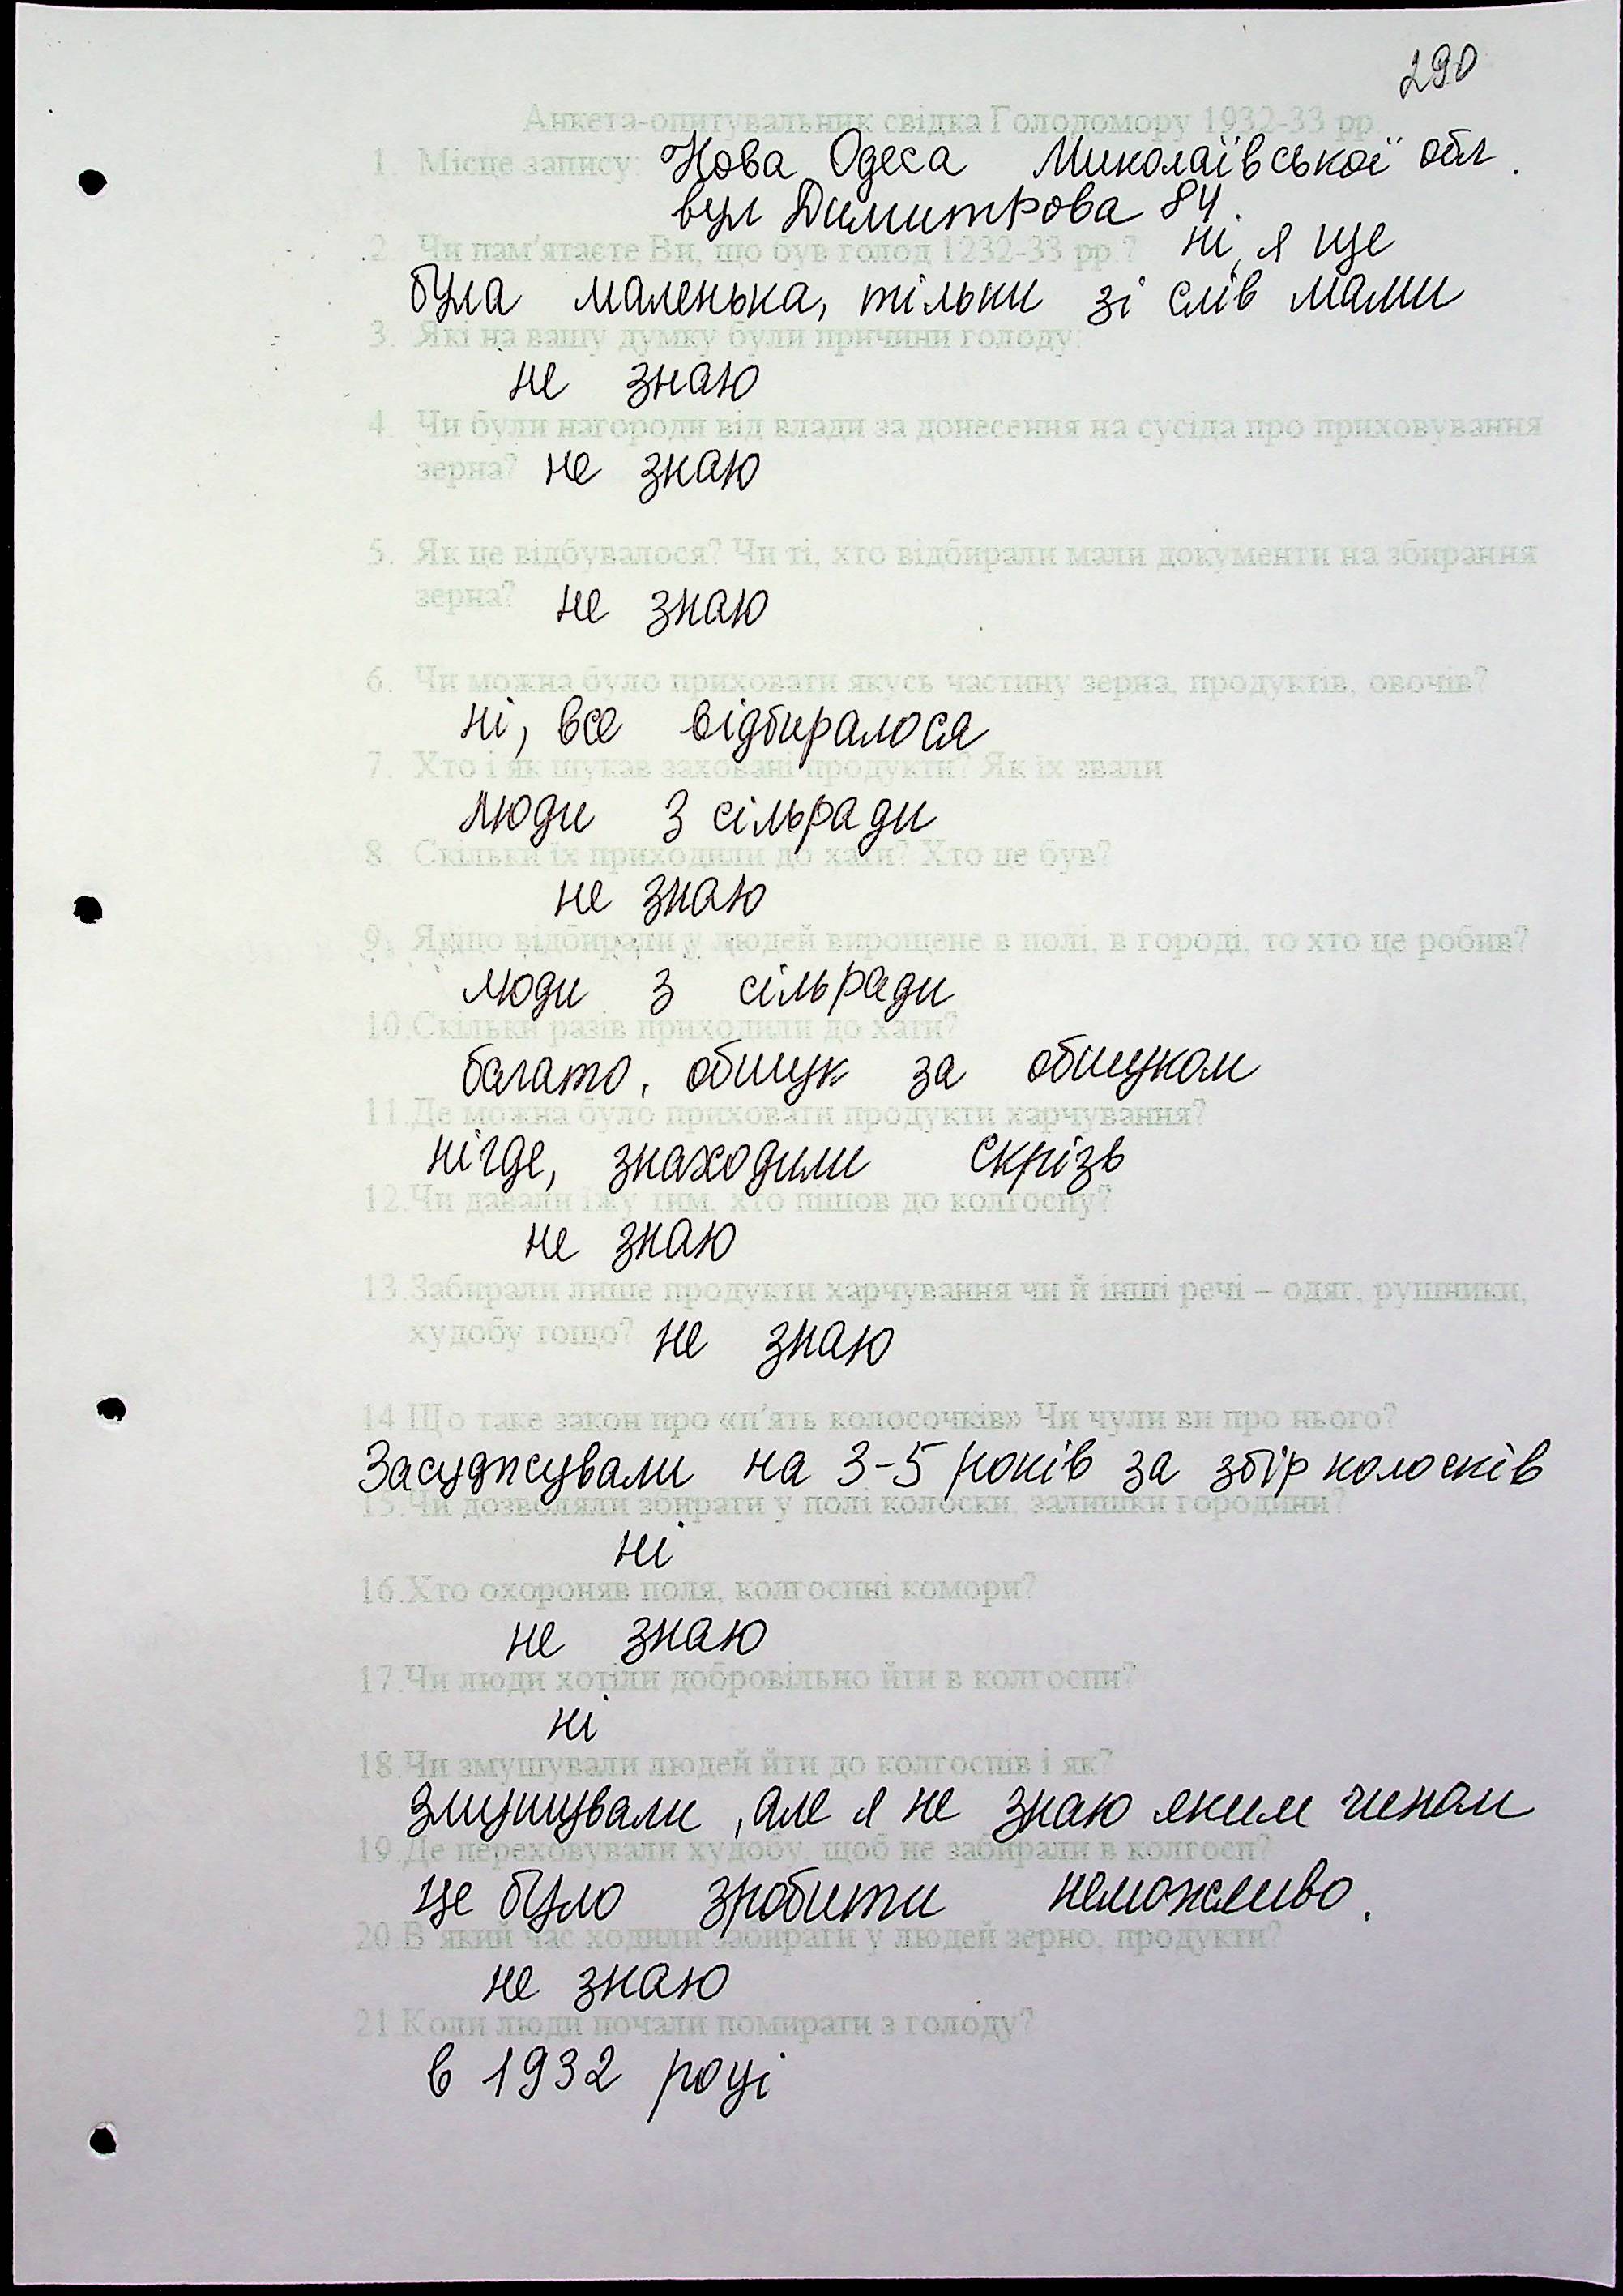 290
Анкета-опитувальник свідка Голодомору 1932-33 рр.
1. Місце запису: Нова Одеса Миколаївської обл.
вул Димитрова 84.
2. Чи пам'ятаєте Ви, що був голод 1232-33 рр.? ні, я ще
була маленька, тільки зі слів мами
3. Які на вашу думку були причини голоду:
не знаю
4. Чи були нагороди від влади за донесення на сусіда про приховування
зерна? не знаю
5. Як це відбувалося? Чи ті, хто відбирали мали документи на збирання
зерна? не знаю
6. Чи можна було приховати якусь частину зерна, продуктів, овочів?
ні, все відбиралося
7. Хто і як шукав заховані продукти? Як їх звали
люди з сільради
8. Скільки їх приходили до хати? Хто це був?
не знаю
9. Якщо відбирали у людей вирощене в полі, в городі, то хто це робив?
люди з сільради
10.Скільки разів приходили до хати?
багато, обшук за обшуком
11.Де можна було приховати продукти харчування?
нігде, знаходили скрізь
12.Чи давали їжу тим, хто пішов до колгоспу?
не знаю
13.Забирали лише продукти харчування чи й інші речі – одяг, рушники,
худобу тощо? не знаю
14 Що таке закон про «п'ять колосочків» Чи чули ви про нього?
Засуджували на 3-5 років за збір колосків
15.Чи дозволяли збирати у полі колоски, залишки городини?
ні
16.Хто охороняв поля, колгоспні комори?
не знаю
17.Чи люди хотіли добровільно йти в колгоспи?
ні
18.Чи змушували людей йти до колгоспів і як?
змушували, але я не знаю яким чином
19.Де переховували худобу, щоб не забирали в колгосп?
це було зробити неможливо.
20.В який час ходили забирати у людей зерно, продукти?
не знаю
21 Коли люди почали помирати з голоду?
в 1932 році